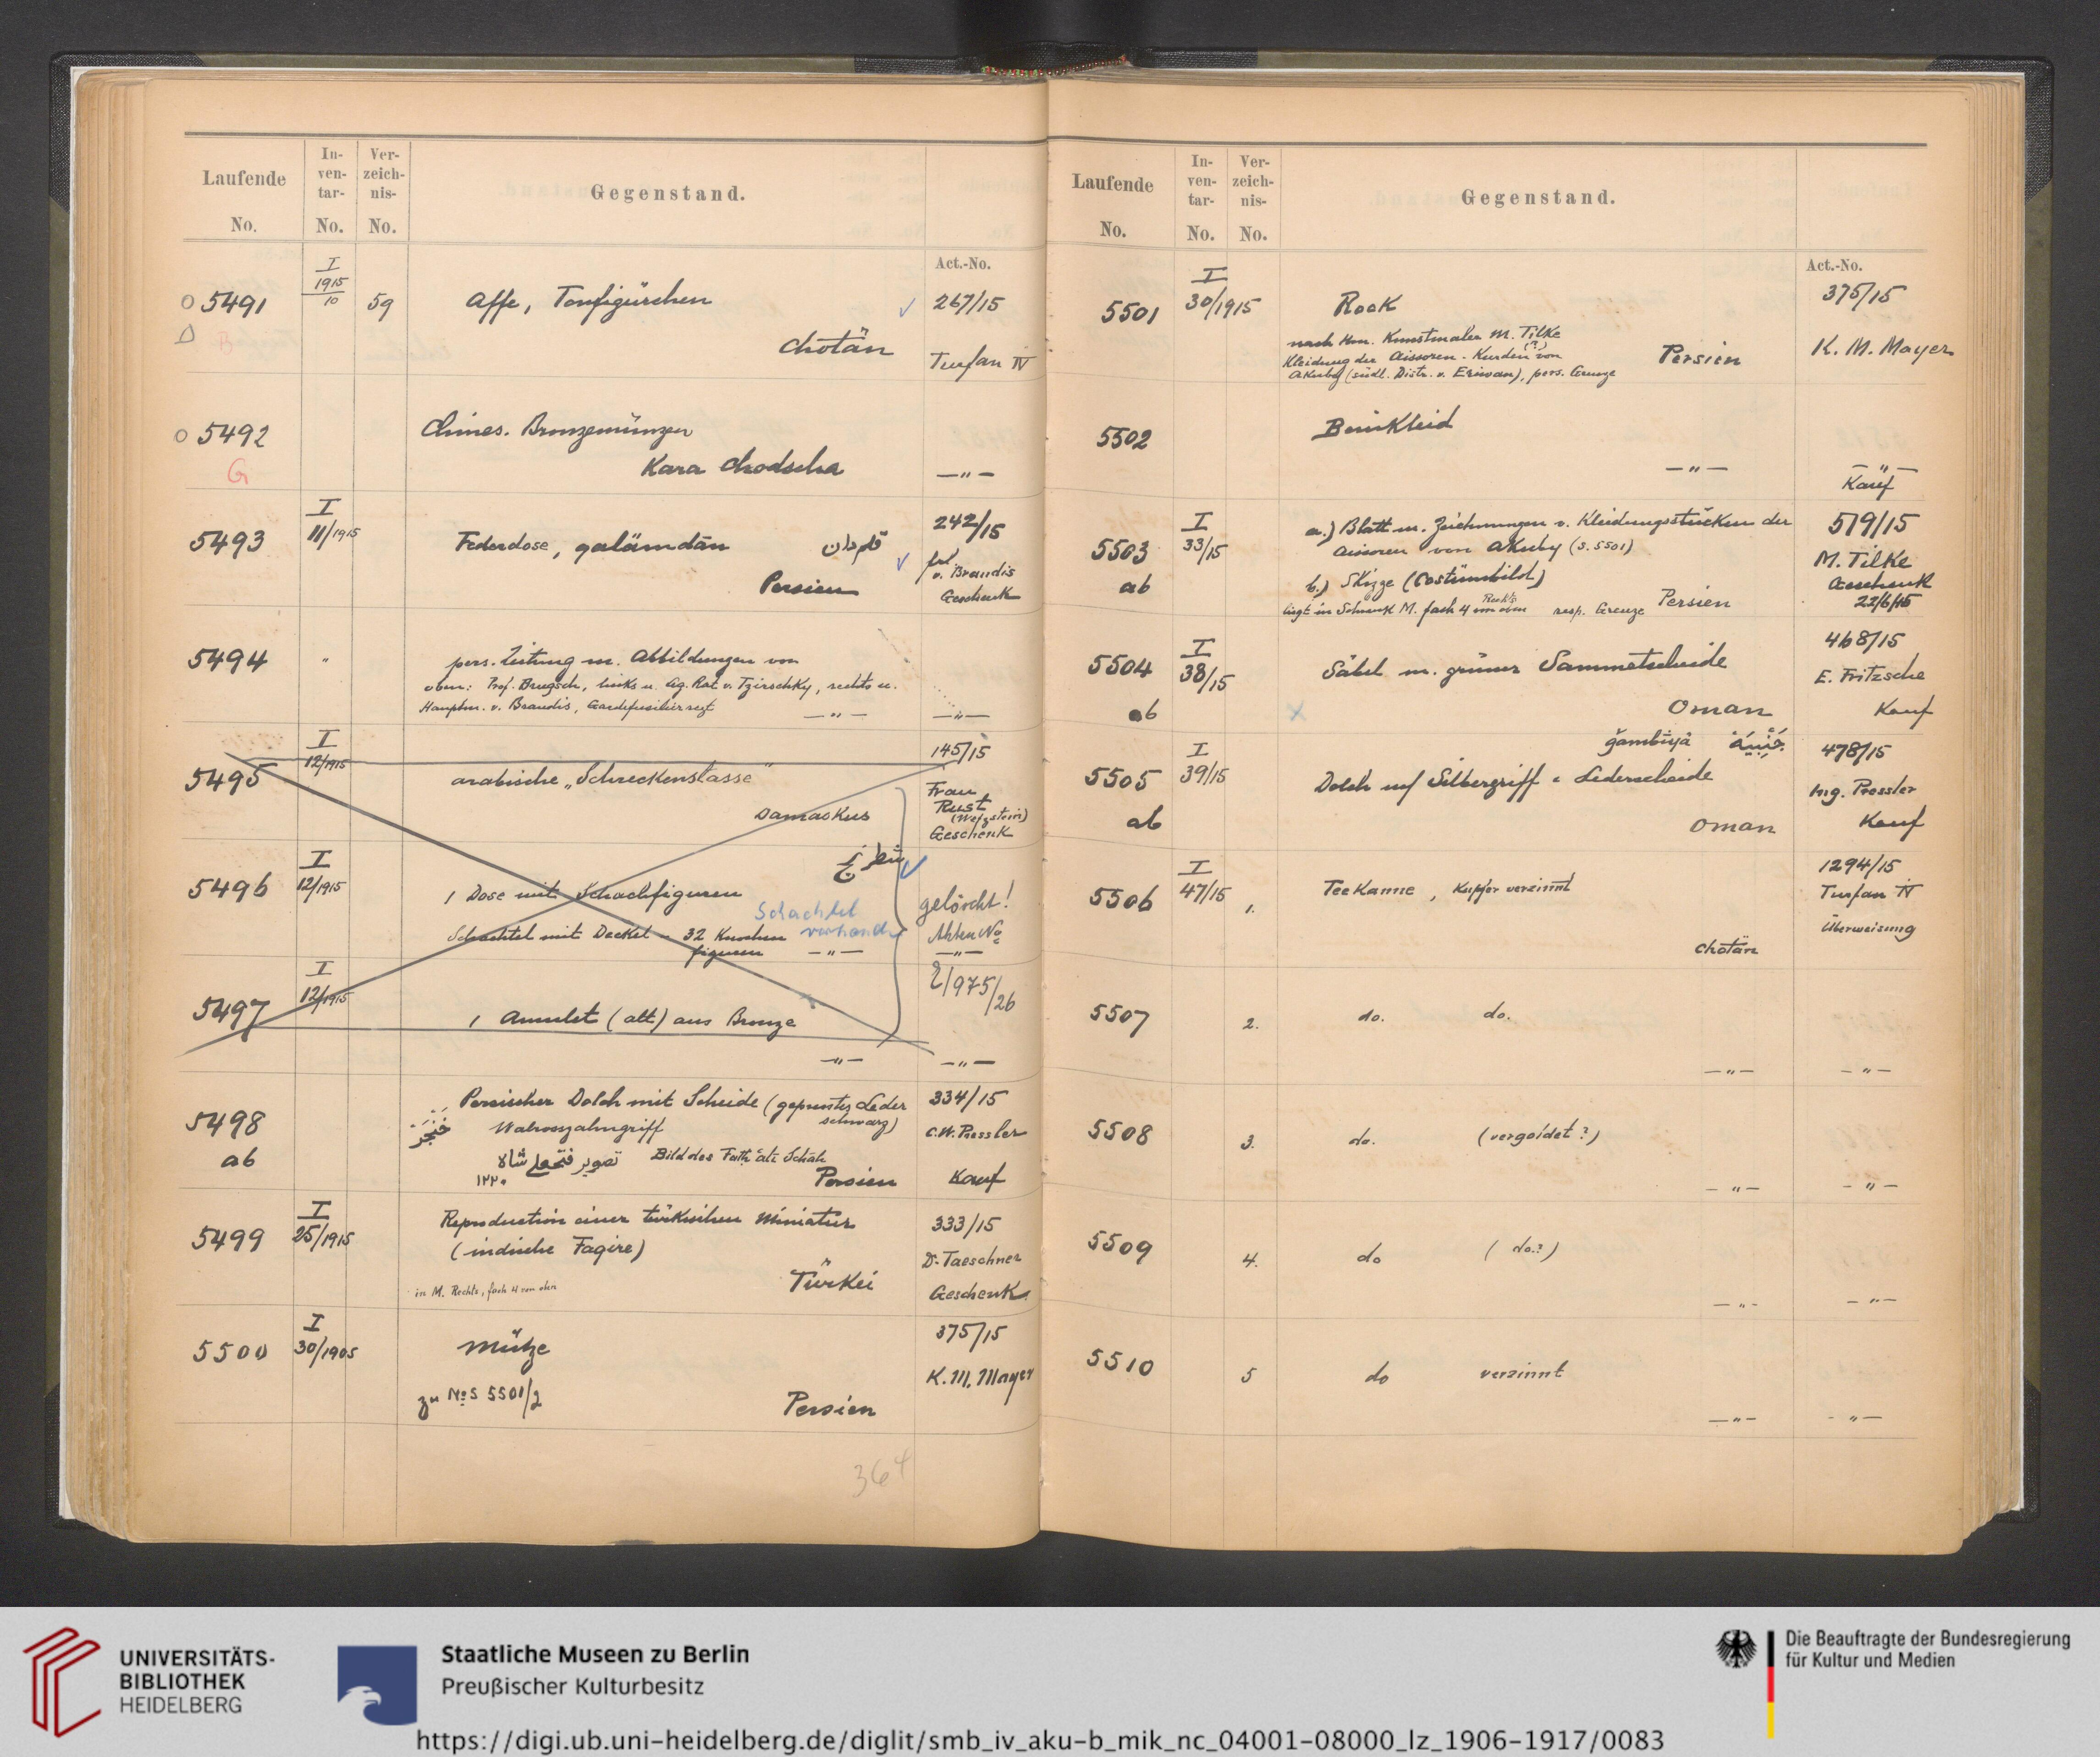 Laufende No.
In-ven-tar- No.
Ver-zeich-nis- No.
Gegenstand.
Act.-No.
5491
I 1915/10
59
Affe, Tonfigürchen
Chotän
267/15
Turfan IV
B
5492
G
Chines. Bronzemünzen
Kara Chodscha
— " —
5493
I 11/1915
Federdose, qalämdān قلمدان
Persien
242/15
frl. v. Brandis
Geschenk
5494
"
pers. Zeitung m. Abbildungen von
oben: Prof. Brugsch, links u. Lg. Rat v. Tzirschky, rechts u.
Hauptm. v. Brandis, Gardefusilierregt
— " —
— " —
5495
I 12/1915
arabische „Schreckenstasse"
Damaskus
145/15
Frau Rust
(Wetzstein)
Geschenk
5496
I 12/1915
شطرنج
1 Dose mit Schachfiguren
Schachtel mit Deckel - 32 Knochen
figuren — " —
Schachtel
vorhanden
gelöscht!
Akten No
— " —
E/975/26
5497
I 12/1915
1 Amulet (alt) aus Bronze
— " —
— " —
5498
ab
Persischer Dolch mit Scheide (gepresstes Leder
schwarz)
خنجر Walrosszahngriff
تصویر فتحعلی شاه Bild des Fatḥ ʿali Schah
۱۲۲۰
Persien
334/15
C. W. Pressler
Kauf
5499
I 25/1915
Reproduction einer türkischen Miniatur
(indische Faqire)
in M. Rechts, fach 4 von oben
Türkei
333/15
Dr. Taeschner
Geschenk
5500
I 30/1905
Mütze
zu No S 5501/2
Persien
375/15
K. M. Mayer
364
Laufende No.
In-ven-tar- No.
Ver-zeich-nis- No.
Gegenstand.
Act.-No.
5501
I 30/1915
Rock
nach Hrn. Kunstmaler M. Tilke
Kleidung der Aissoren-Kurden (?) von
Akuby (südl. Distr. v. Eriwan), pers. Grenze
Persien
375/15
K. M. Mayer
5502
Beinkleid
— " —
— " —
Kauf
5503
ab
I 33/15
a.) Blatt m. Zeichnungen v. Kleidungsstücken der
Aissoren von Akuby (s. 5501)
b.) Skizze (Costümbild)
liegt in Schrank M. fach 4 von oben Rechts resp. Grenze Persien
519/15
M. Tilke
Geschenk
22/6/15
5504
ab
I 38/15
Säbel m. grüner Sammetscheide
x
Oman
468/15
E. Fritzsche
Kauf
5505
ab
I 39/15
ǧambīyä جنبية
Dolch m/ Silbergriff u. Lederscheide
Oman
478/15
Ing. Pressler
Kauf
5506
I 47/15
1.
Teekanne, Kupfer verzinnt
Chotän
1294/15
Turfan IV
Überweisung
5507
2.
do. do.
— " —
— " —
5508
3.
do. (vergoldet?)
— " —
— " —
5509
4.
do (do.?)
— " —
— " —
5510
5
do verzinnt
— " —
— " —
UNIVERSITÄTS-
BIBLIOTHEK
HEIDELBERG
Staatliche Museen zu Berlin
Preußischer Kulturbesitz
Die Beauftragte der Bundesregierung
für Kultur und Medien
https://digi.ub.uni-heidelberg.de/diglit/smb_iv_aku-b_mik_nc_04001-08000_lz_1906-1917/0083